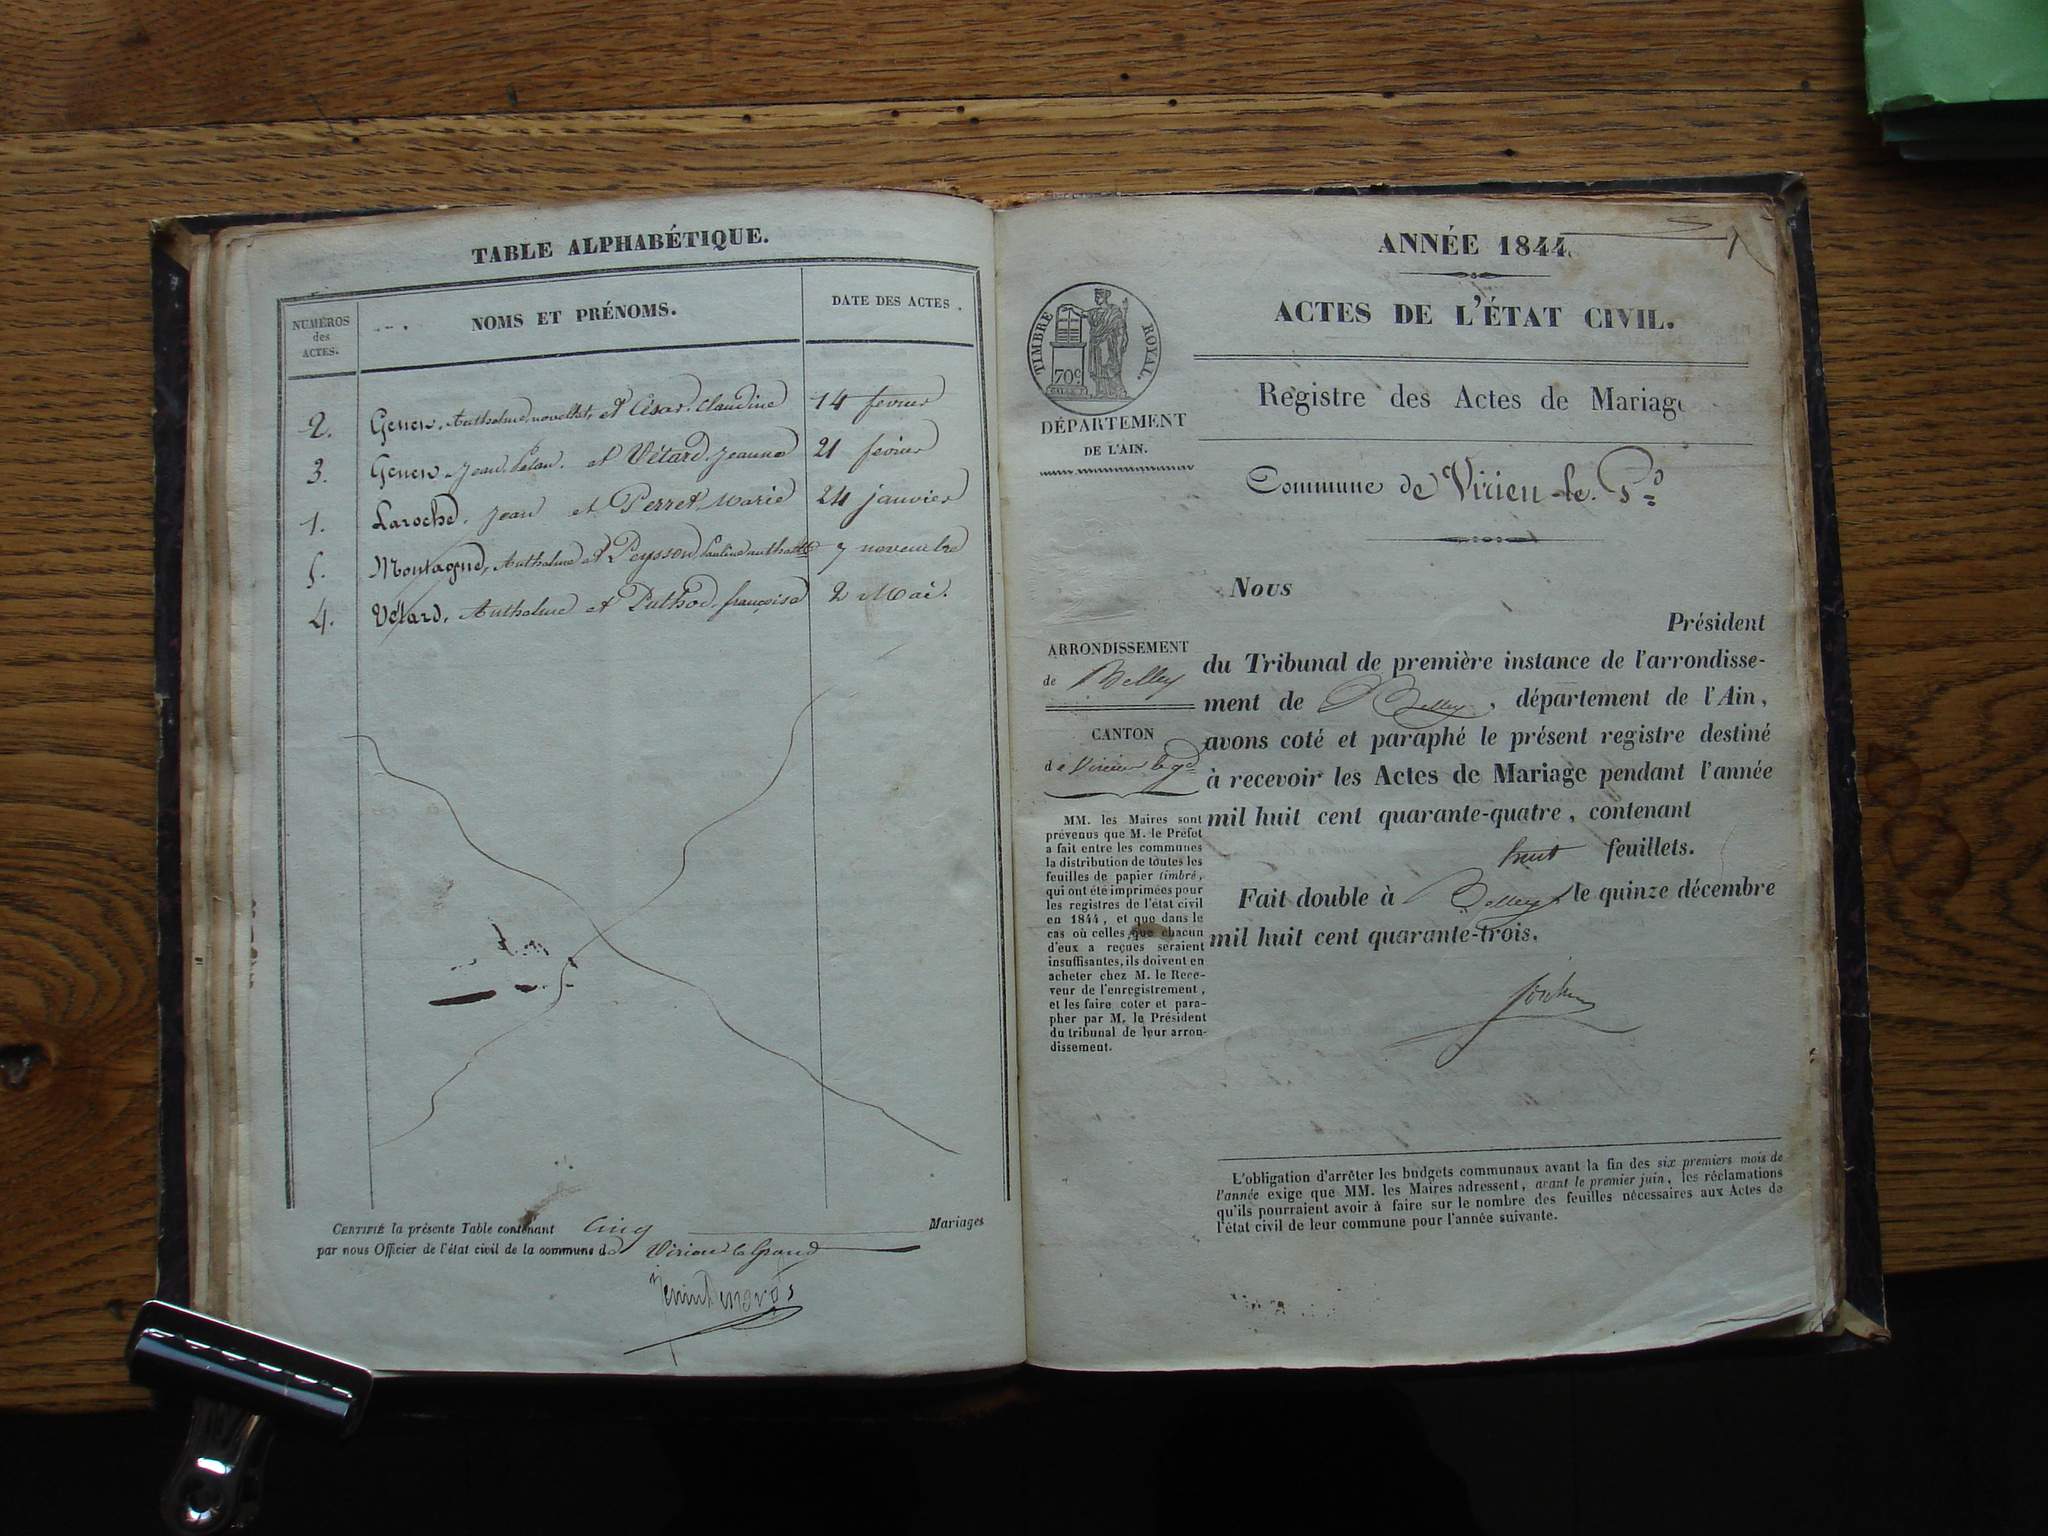 TABLE ALPHABÉTIQUE.
NUMÉROS
des
ACTES.
NOMS ET PRÉNOMS.
DATE DES ACTES.
2. Genen, Anthelme novellet, et César Claudine 14 février
3. Genen Jean et Vétard Jeanne 21 février
1. Laroche, Jean et Perret Marie 24 janvier
5. Montagne, Anthelme et Peysson Pauline 7 novembre
4. Vétard, Anthelme et Puthod françoise 2 Mai.
CERTIFIÉ la présente Table contenant Cinq Mariages
par nous Officier de l'état civil de la commune de Virieu le Grand
ANNÉE 1844.
ACTES DE L'ÉTAT CIVIL.
TIMBRE ROYAL.
70c
Registre des Actes de Mariage
DÉPARTEMENT
DE L'AIN.
Commune de Virieu-le-Gd
Nous
Président
du Tribunal de première instance de l'arrondisse-
ment de Belley, département de l'Ain,
avons coté et paraphé le présent registre destiné
à recevoir les Actes de Mariage pendant l'année
mil huit cent quarante-quatre, contenant
huit feuillets.
Fait double à Belley, le quinze décembre
mil huit cent quarante-trois.
ARRONDISSEMENT
de Belley
CANTON
de Virieu le gd
MM. les Maires sont
prévenus que M. le Préfet
a fait entre les communes
la distribution de toutes les
feuilles de papier timbré,
qui ont été imprimées pour
les registres de l'état civil
en 1844, et que dans le
cas où celles que chacun
d'eux a reçues seraient
insuffisantes, ils doivent en
acheter chez M. le Rece-
veur de l'enregistrement,
et les faire coter et para-
pher par M. le Président
du tribunal de leur arron-
dissement.
L'obligation d'arrêter les budgets communaux avant la fin des six premiers mois de
l'année exige que MM. les Maires adressent, avant le premier juin, les réclamations
qu'ils pourraient avoir à faire sur le nombre des feuilles nécessaires aux Actes de
l'état civil de leur commune pour l'année suivante.